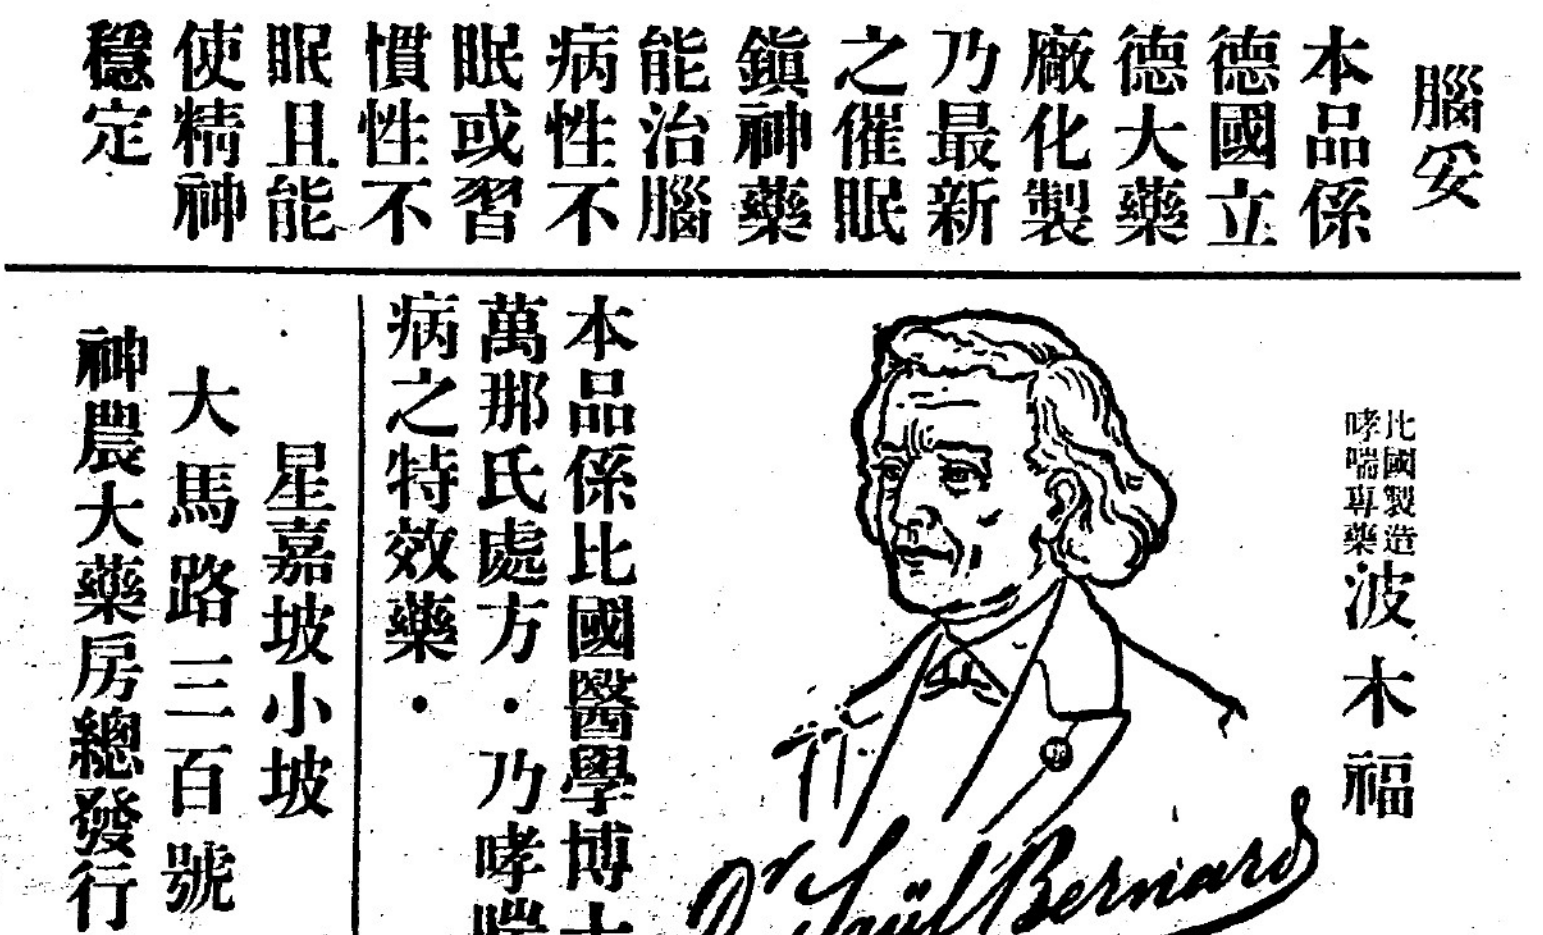 腦妥
本品係
德國立
德大藥
廠化製
乃最新
之催眠
鎭神藥
能治腦
病性不
眠或習
慣性不
眠且能
使精神
穩定
比國製造
哮喘專藥
波木福
Dr Saül Bernard
本品係比國醫學博士
萬那氏處方．乃哮喘
病之特效藥．
星嘉坡小坡
大馬路三百號
神農大藥房總發行